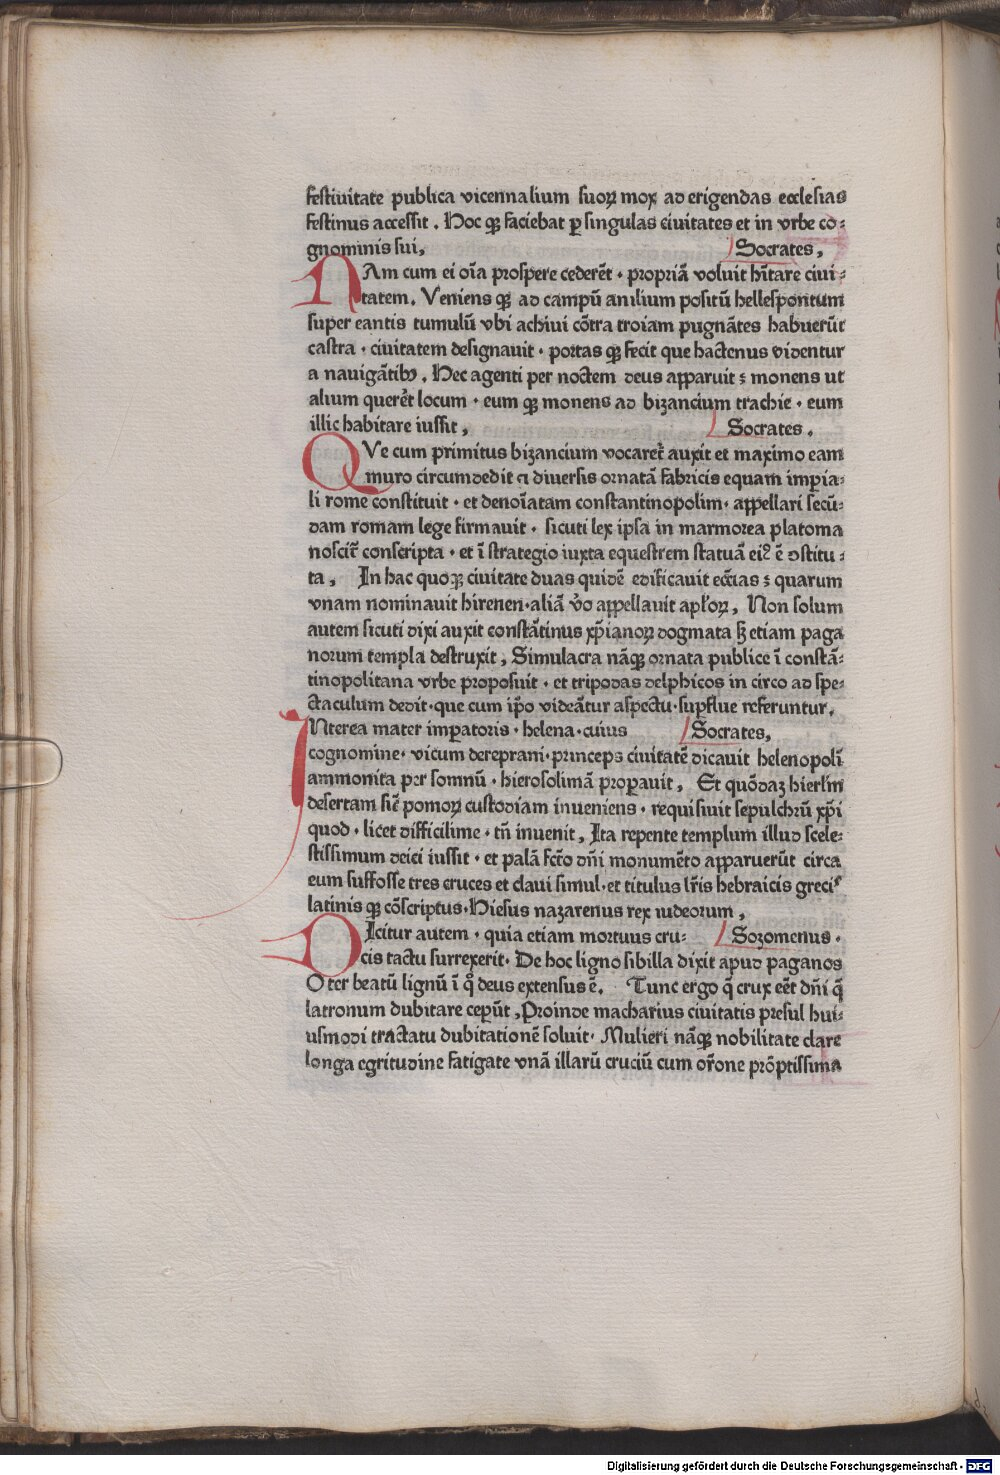 festiuitate publica vicennalium suoꝝ mox ad erigendas ecclesias
festinus accessit. Hoc qꝫ faciebat ꝑ singulas ciuitates et in vrbe co⸗
gnominis sui, Socrates,
NAm cum ei oı̄a prospere cederēt · propriā voluit hı̄tare ciui⸗
tatem. Veniens qꝫ ad campū anilium positū hellespontum
super eantis tumulū vbi achiui cōtra troiam pugnātes habuerūt
castra · ciuitatem designauit · portas qꝫ fecit que hactenus videntur
a nauigātibꝰ. Hec agenti per noctem deus apparuit : monens ut
alium querēt locum · eum qꝫ monens ad bizancium trachie · eum
illic habitare iussit, Socrates.
QVe cum primitus bizancium vocaret̄ auxit et maximo eam
muro circumdedit ⁊ diuersis ornatā fabricis equam imꝑia⸗
li rome constituit · et denoı̄atam constantinopolim · appellari secū⸗
dam romam lege firmauit · sicuti lex ipsa in marmorea platoma
noscit̄ conscripta · et ī strategio iuxta equestrem statuā eiꝰ ē ↄstitu⸗
ta, In hac quoqꝫ ciuitate duas quidē edificauit eccı̄as : quarum
vnam nominauit hirenen · aliā v̄o appellauit apl̄oꝝ, Non solum
autem sicuti dixi auxit constātinus xp̄ianoꝝ dogmata sꝫ etiam paga
norum templa destruxit, Simulacra nāqꝫ ornata publice ī constā⸗
tinopolitana vrbe proposuit · et tripodas delphicos in circo ad spe⸗
ctaculum dedit · que cum ip̄o videātur aspectu · suꝑflue referuntur.
INterea mater imꝑatoris · helena · cuius Socrates,
cognomine · vicum dereprani · princeps ciuitatē dicauit helenopolī
ammonita per somnū · hierosolimā proꝑauit, Et quōdaꝫ hierl̄m
desertam sic̄ pomoꝝ custodiam inueniens · requisiuit sepulchrū xp̄i
quod · licet difficilime · tn̄ inuenit, Ita repente templum illud scele⸗
stissimum deici iussit · et palā fc̄to dn̄i monumēto apparuerūt circa
eum suffosse tres cruces et claui simul · et titulus lr̄is hebraicis grecis
latinis qꝫ cōscriptus · Hiesus nazarenus rex iudeorum,
DIcitur autem · quia etiam mortuus cru⸗ Sozomenus ·
cis tactu surrexerit · De hoc ligno sibilla dixit apud paganos
O ter beatū lignū ī qͦ deus extensus ē. Tunc ergo q̄ crux eēt dn̄i q̄
latronum dubitare ceꝑūt, Proinde macharius ciuitatis presul hui⸗
usmodi tractatu dubitationē soluit · Mulieri nāqꝫ nobilitate clare
longa egritudine fatigate vnā illarū cruciū cum or̄one prōptissima
Digitalisierung gefördert durch die Deutsche Forschungsgemeinschaft - DFG